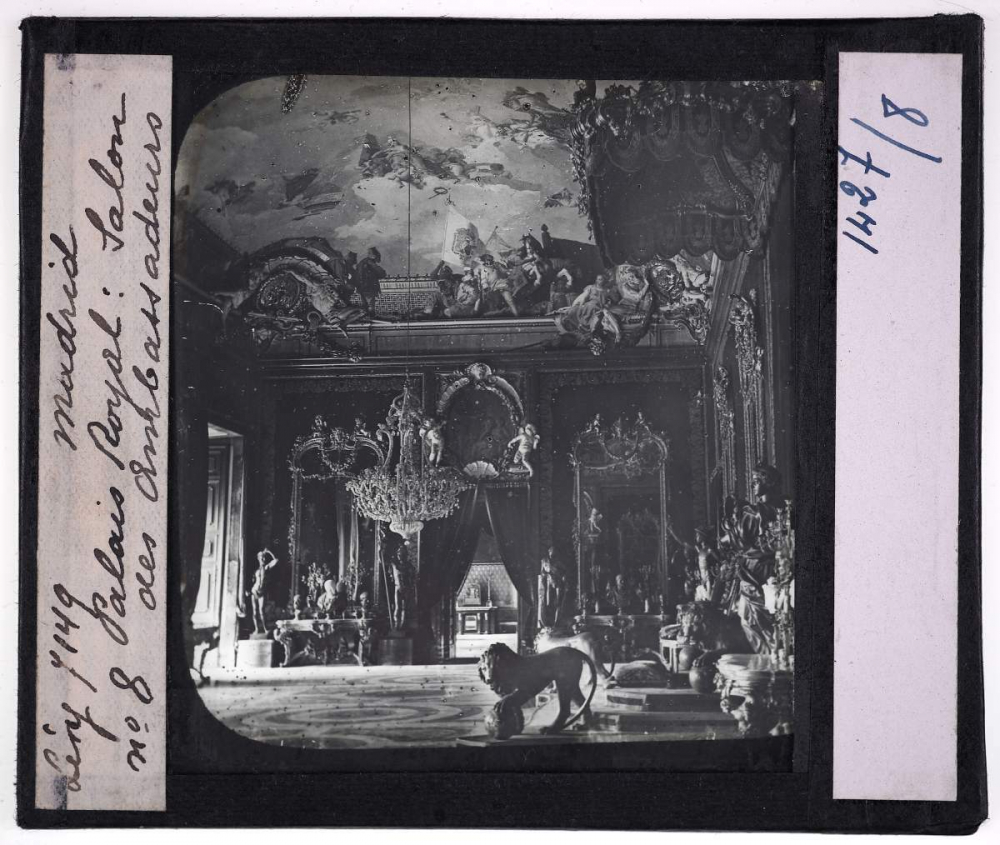 Lévy 7149 Madrid
nº 8 Palais Royal: Salon
des Ambassadeurs
1427/8